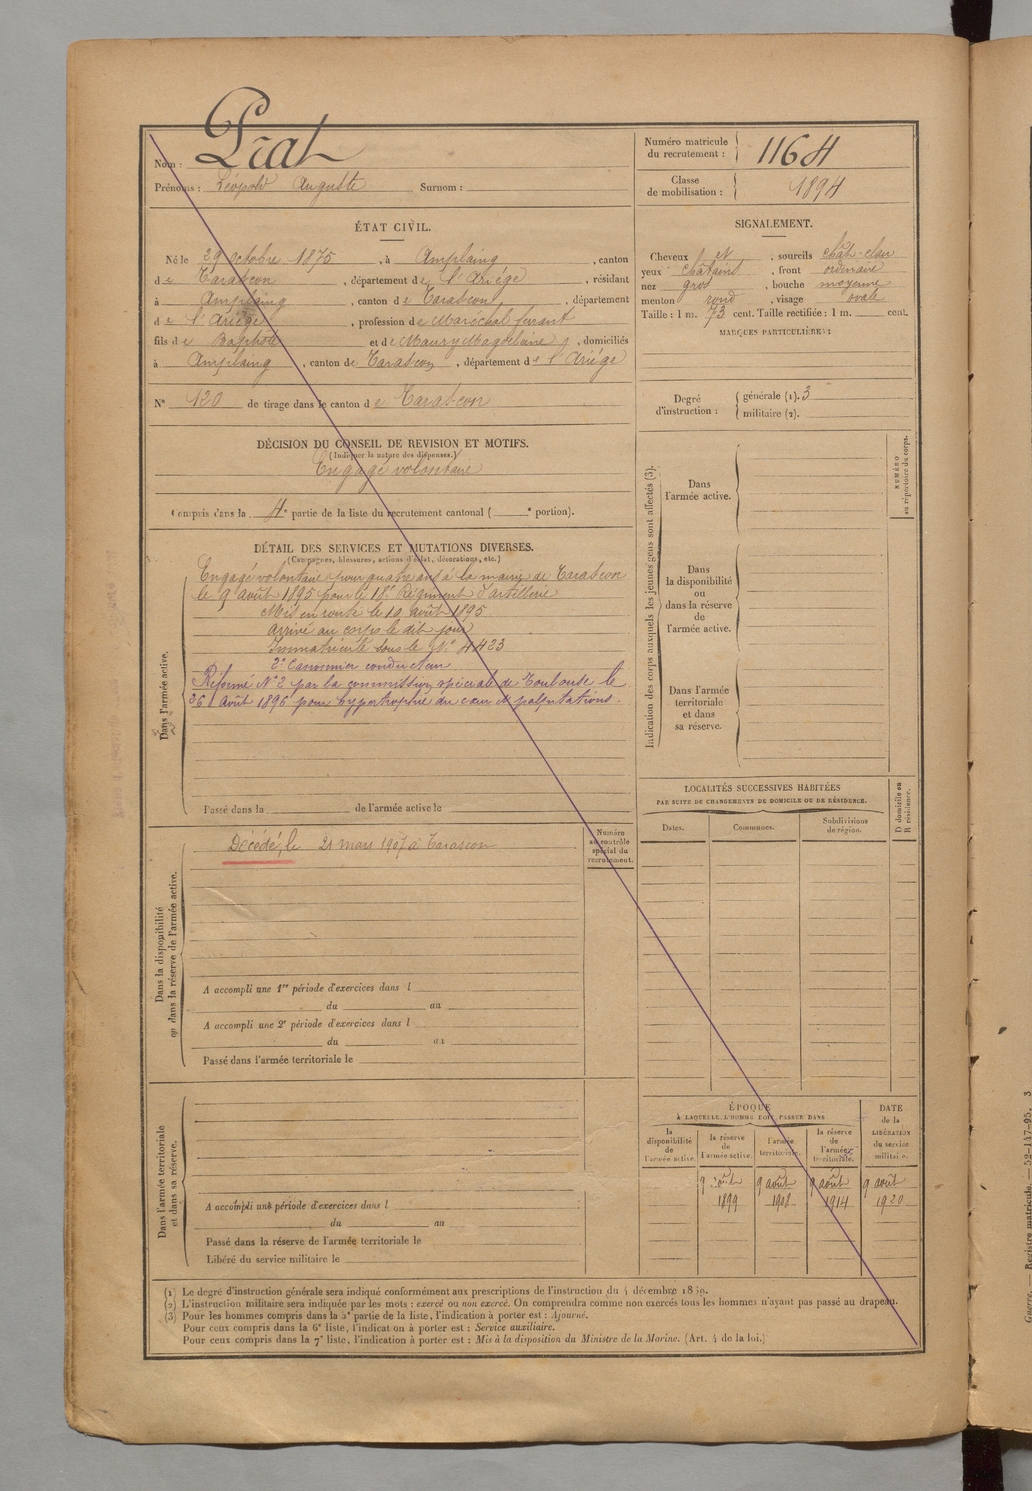 Nom : Prat
Prénoms : Léopold Auguste Surnom :
Numéro matricule
du recrutement : 1164
Classe
de mobilisation : 1894
ÉTAT CIVIL.
Né le 29 octobre 1875 , à Amplaing , canton
de Tarascon , département de l'Ariége , résidant
à Amplaing , canton de Tarascon , département
de l'Ariége , profession de Maréchal ferrant
fils de Raphaël et de Maury Magdelaine , domiciliés
à Amplaing , canton de Tarascon , département de l'Ariége
N° 120 de tirage dans le canton de Tarascon
SIGNALEMENT.
Cheveux et , sourcils chât-clair
yeux châtains , front ordinaire
nez gros , bouche moyenne
menton rond , visage ovale
Taille : 1 m. 73 cent. Taille rectifiée : 1 m. cent.
MARQUES PARTICULIÈRES :
Degré
d'instruction :
générale (1). 3
militaire (2).
DÉCISION DU CONSEIL DE REVISION ET MOTIFS.
(Indiquer la nature des dispenses.)
Engagé volontaire
Compris dans la 4e partie de la liste du recrutement cantonal ( e portion).
DÉTAIL DES SERVICES ET MUTATIONS DIVERSES.
(Campagnes, blessures, actions d'éclat, décorations, etc.)
Dans l'armée active.
Engagé volontaire pour quatre ans à la mairie de Tarascon
le 9 août 1895 pour le 18e Régiment d'artillerie
Mis en route le 10 août 1895
Arrivé au corps le dit jour
Immatriculé sous le N° 4423
2e Canonnier conducteur
Réformé N°2 par la commission spéciale de Toulouse le
26 Août 1896 pour hypertrophie du cœur et palpitations.
Passé dans la de l'armée active le
Indication des corps auxquels les jeunes gens sont affectés (3).
NUMÉRO
au répertoire du corps.
Dans
l'armée active.
Dans
la disponibilité
ou
dans la réserve
de
l'armée active.
Dans l'armée
territoriale
et dans
sa réserve.
LOCALITÉS SUCCESSIVES HABITÉES
PAR SUITE DE CHANGEMENTS DE DOMICILE OU DE RÉSIDENCE.
Dates.
Communes.
Subdivisions
de région.
D domicile ou
R résidence.
Dans la disponibilité
ou dans la réserve de l'armée active.
Numéro
au contrôle
spécial du
recrutement.
Décédé, le 21 mars 1907 à Tarascon
A accompli une 1re période d'exercices dans l
du au
A accompli une 2e période d'exercices dans l
du au
Passé dans l'armée territoriale le
Dans l'armée territoriale
et dans sa réserve.
A accompli une période d'exercices dans l
du au
Passé dans la réserve de l'armée territoriale le
Libéré du service militaire le
ÉPOQUE
À LAQUELLE L'HOMME DOIT PASSER DANS
la
disponibilité
de
l'armée active.
la réserve
de
l'armée active.
l'armée
territoriale.
la réserve
de
l'armée
territoriale.
DATE
de la
LIBÉRATION
du service
militaire.
9 août 9 août 9 août 9 août
1899 1908 1914 1920
(1) Le degré d'instruction générale sera indiqué conformément aux prescriptions de l'instruction du 4 décembre 1889.
(2) L'instruction militaire sera indiquée par les mots : exercé ou non exercé. On comprendra comme non exercés tous les hommes n'ayant pas passé au drapeau.
(3) Pour les hommes compris dans la 5e partie de la liste, l'indication à porter est : Ajourné.
Pour ceux compris dans la 6e liste, l'indication à porter est : Service auxiliaire.
Pour ceux compris dans la 7e liste, l'indication à porter est : Mis à la disposition du Ministre de la Marine. (Art. 4 de la loi.)
Guerre. — Registre matricule. — 52-147-95. 3